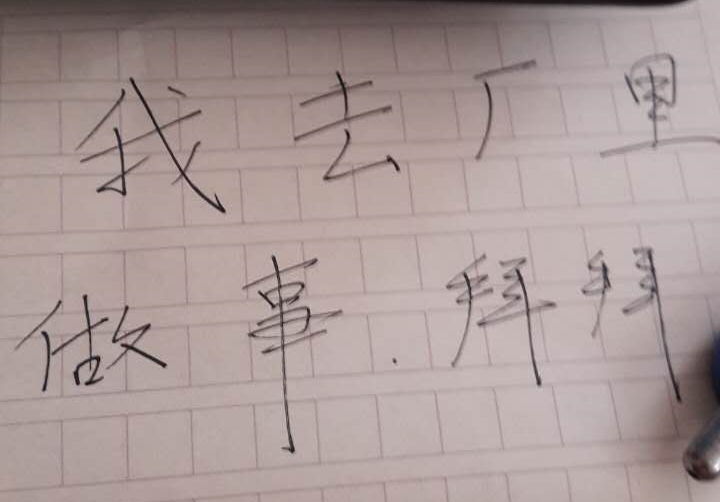 我去厂里
做事.拜拜